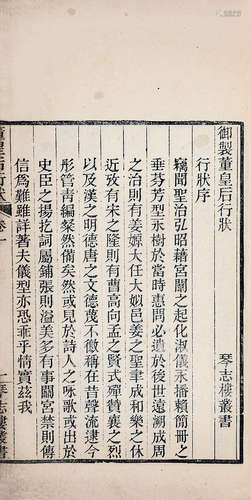 御製董皇后行狀
琴志樓叢書
行狀序
竊聞聖治弘昭藉宮闈之起化淑儀永播賴簡冊之
垂芬芳型永樹於當時惠問必遺於後世遠溯成周
之治則有姜嫄大任大姒邑姜之聖聿成和樂之休
近攷有宋之隆則有曹高向孟之賢式殫贊襄之烈
以及漢之明德唐之文德莫不徽稱在昔聲流逮今
彤管青編粲然備矣然或見於詩人之咏歌或出於
史臣之揚扢詞屬鋪張則溢美多有事關宮禁則傳
信為難雖詳著夫儀型亦恐乖乎情實茲我
董皇后行狀 卷一
琴志樓叢書